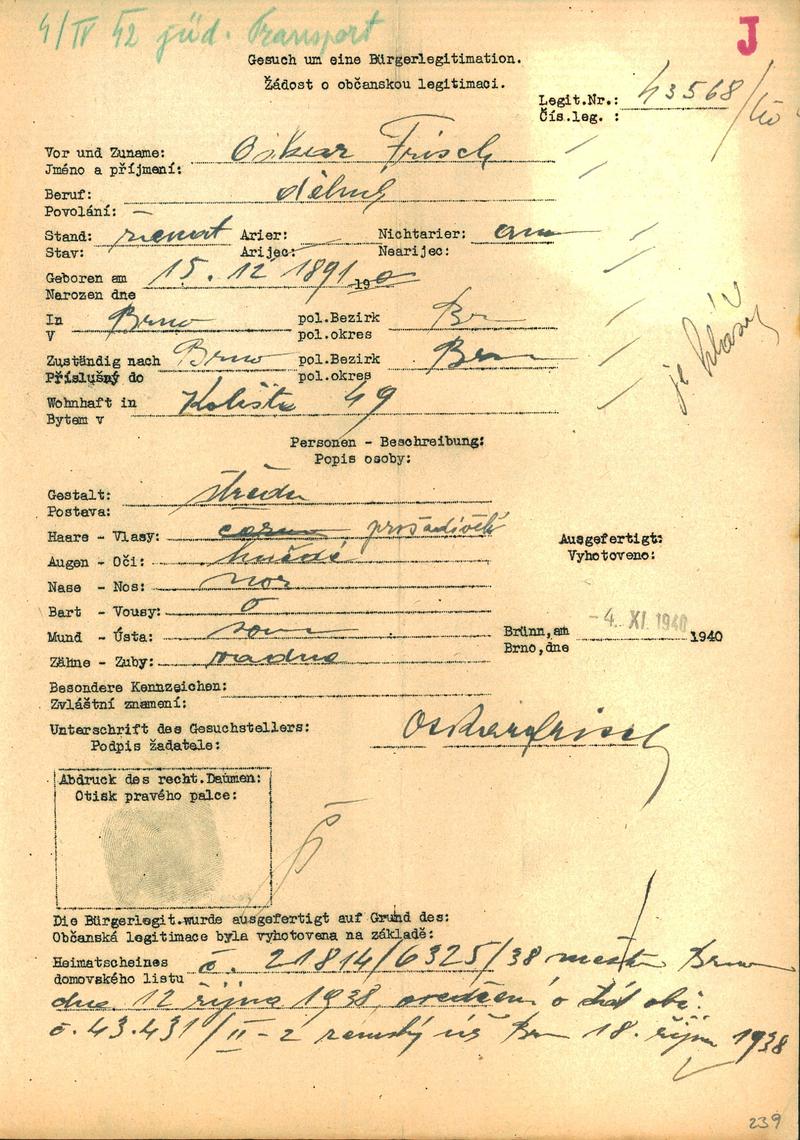 4/IV 42 jüd. Transport
J
Gesuch um eine Bürgerlegitimation.
Žádost o občanskou legitimaci.
Legit.Nr.: 43568/40
Čís.leg. :
Vor und Zuname: Oskar Frisch
Jméno a příjmení:
Beruf: dělník
Povolání:
Stand: ženat Arier: Nichtarier: ano
Stav: Arijec: Nearijec:
Geboren am 15. 12 1891 19
Narozen dne
In Brno pol.Bezirk Br
V pol.okres
Zuständig nach Brno pol.Bezirk Brno
Příslušný do pol.okres
Wohnhaft in Koliště 49
Bytem v
je hlášen
Personen - Beschreibung:
Popis osoby:
Gestalt: střední
Postava:
Haare - Vlasy: prošedivělé
Augen - Oči: hnědé
Nase - Nos: nor
Bart - Vousy: 0
Mund - Ústa: soum
Zähne - Zuby: vadné
Ausgefertigt:
Vyhotoveno:
Brünn,am -4. XI. 1940 1940
Brno,dne
Besondere Kennzeichen:
Zvláštní znamení:
Unterschrift des Gesuchstellers: Oskar Frisch
Podpis žadatele:
Abdruck des recht.Daumen:
Otisk pravého palce:
Die Bürgerlegit.wurde ausgefertigt auf Grund des:
Občanská legitimace byla vyhotovena na základě:
Heimatscheines č. 21814/6325/38 města Brna
domovského listu
dne 12 října 1938, osvědčení o stát obč.
č. 43.431/II-2 zemský úř Brno 18. říjn 1938
239